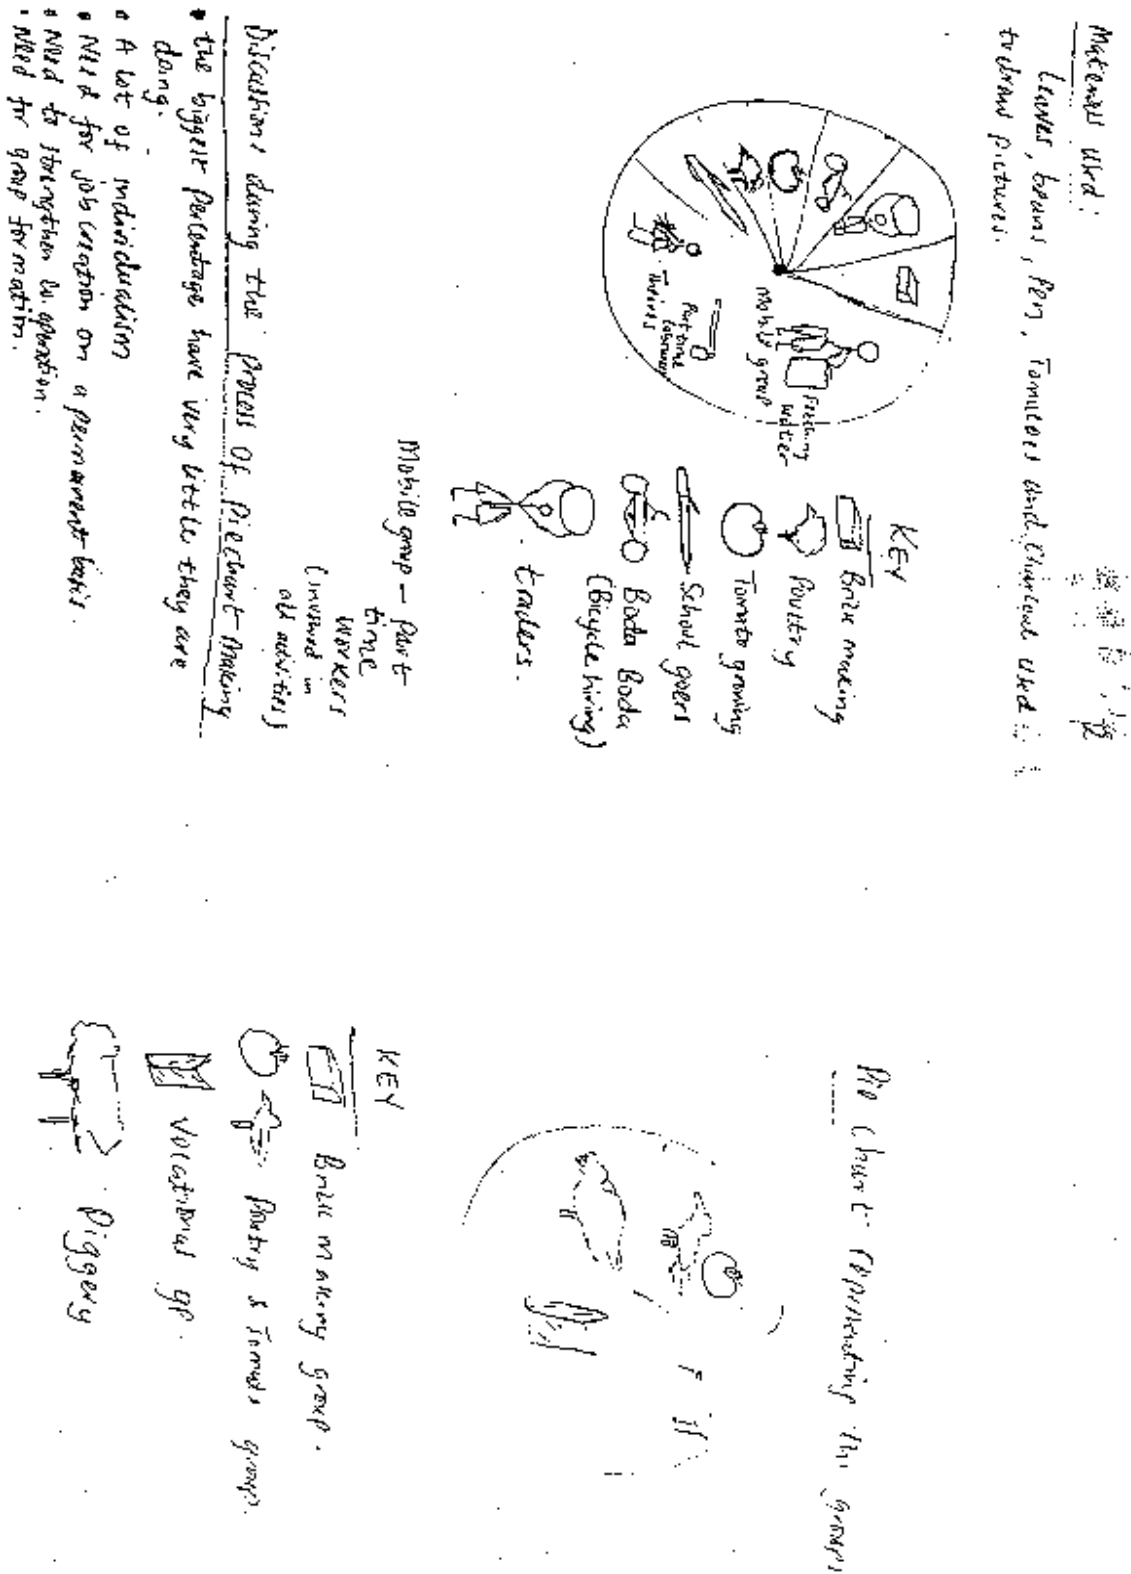 Materials used:
Leaves, beans, Pen, Tomatoes and Charcoal used
to draw pictures.
Fetching
water
Mobile group
Part time
labourers
Thieves
KEY
Brick making
Poultry
Tomato growing
School goers
Boda Boda
(Bicycle hiring)
traders.
Mobile group - Part
time
workers
(involved in
all activities)
Discussions during the process of Piechart Making
• the biggest percentage have very little they are
doing.
• A lot of individualism
• Need for job creation on a permanent basis.
• Need to strengthen co. operation.
• Need for group formation.
Pie Chart representing the groups
KEY
Brick making group.
Poultry & Tomato group.
Vocational gp.
Piggery